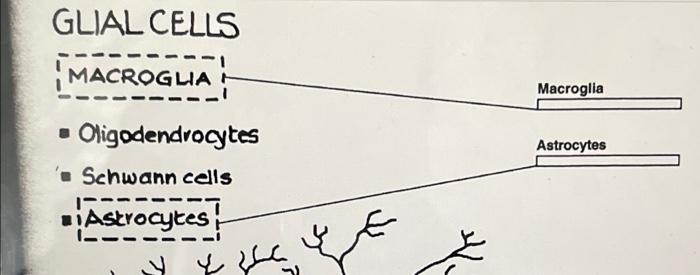 GLIAL CELLS
MACROGLIA
Macroglia
Oligodendrocytes
Astrocytes
Schwann cells
Astrocytes